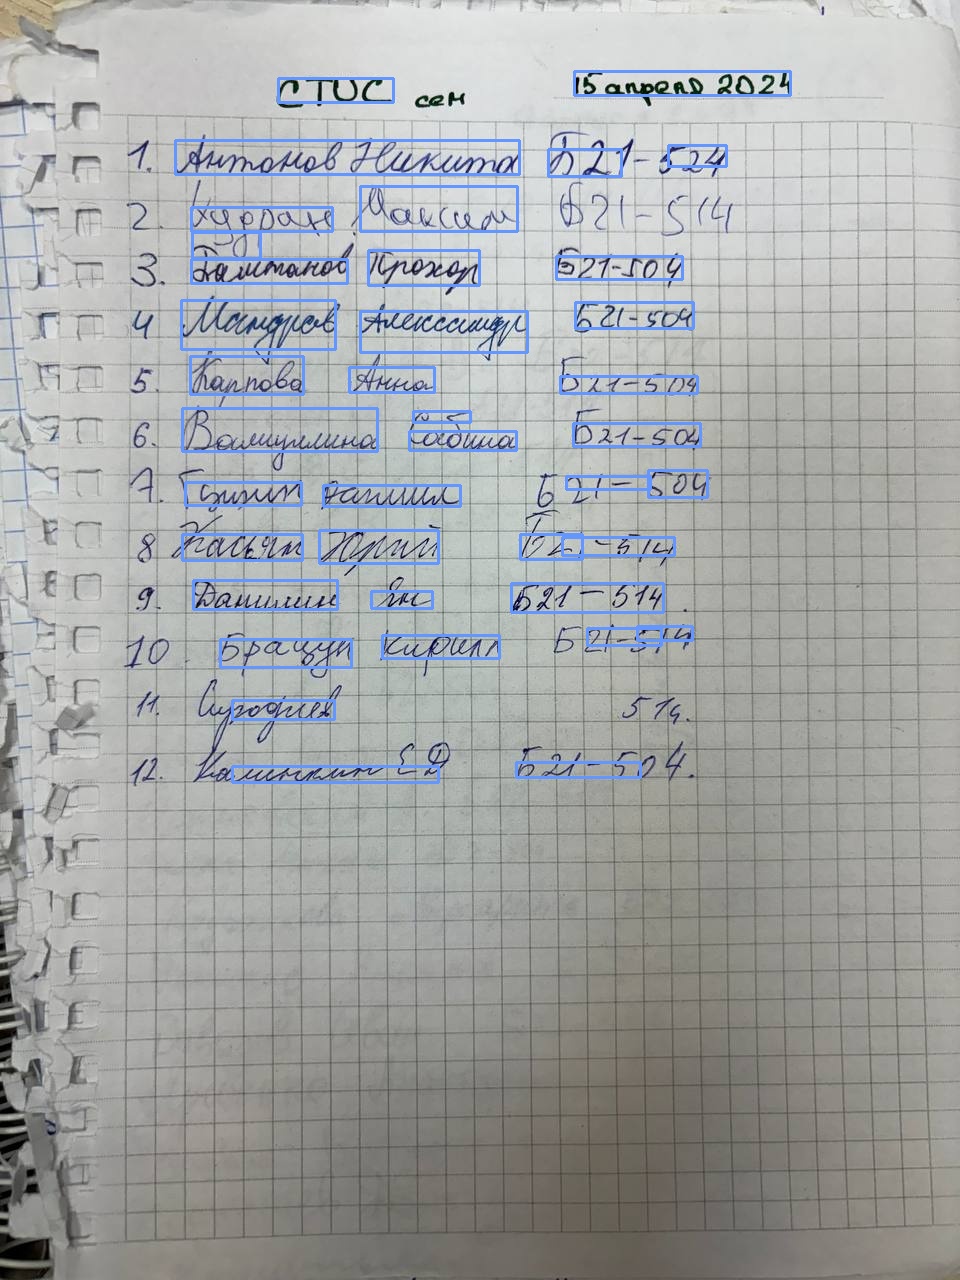 СТИС сем 15 апреля 2024
1. Антонов Никита Б21-524
2. Максим Б21-514
3. Прохор Б21-504
4 Александр Б21-504
5. Карпова Анна Б21-504
6. Валиуллина Сабина Б21-504
7. Б21-504
8 Касьян Юрий Б21-514
9. Данилин Ян Б21-514.
10. Брацун Кирилл Б21-514
11. 514.
12. Калинкин ЕД Б21-504.